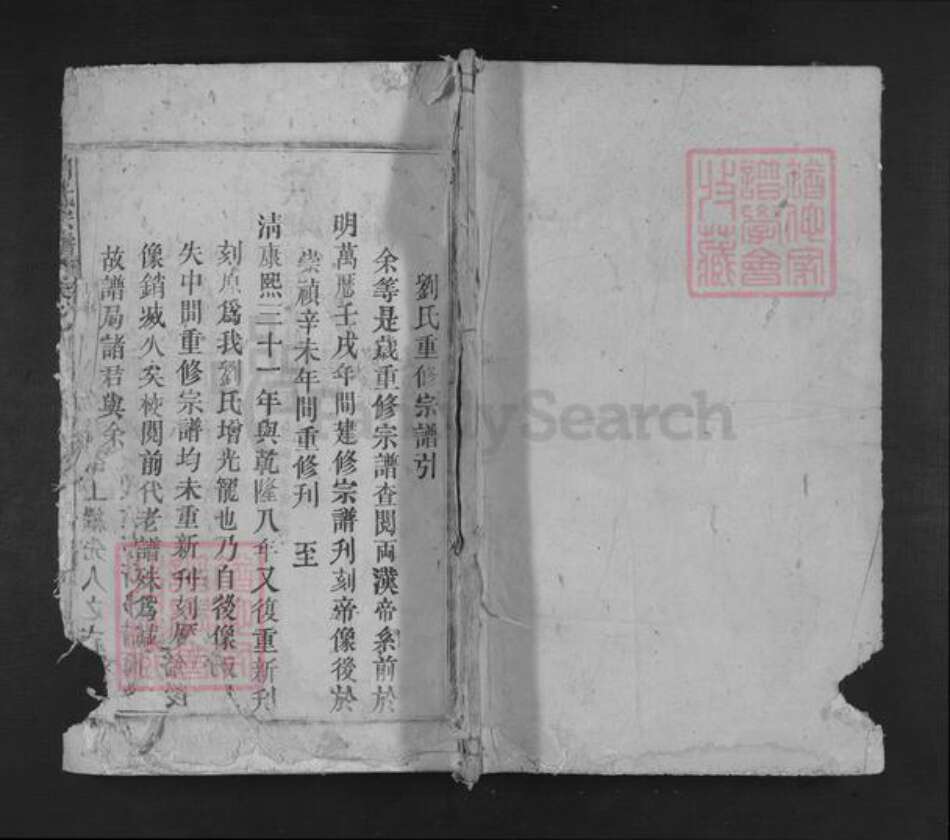 劉氏重修宗譜引
余等是歲重修宗譜查閱兩漢帝系前於
明萬曆壬戌年間建修宗譜刊刻帝像後於
崇禎辛未年間重修刊 至
清康熙三十一年與乾隆八年又復重新刊
刻原爲我劉氏增光寵也乃自後像
失中間重修宗譜均未重新刊刻
像銷滅久矣校閱前代老譜殊爲
故譜局諸君與余
家譜學會收藏
MySearch